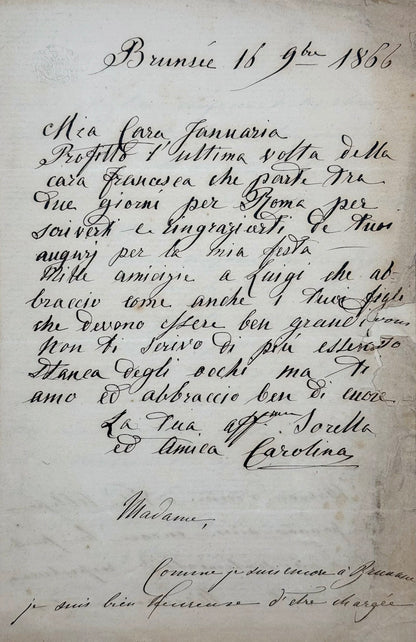 Brunsée 16 9bre 1866
Mia Cara Januaria
Profitto l'ultima volta della
cara Francesca che parte tra
due giorni per Roma per
scriverti e ringraziarti de tuoi
augurj per la mia festa —
Mille amicizie a Luigi che ab-
braccio come anche i tuoi figli
che devono essere ben grandi
Non ti scrivo di più essendo
stanca degli occhi ma ti
amo ed abbraccio ben di cuore
La tua affma Sorella
ed Amica Carolina
Madame,
Comme je suis encore à Brunsée
je suis bien Heureuse d'être chargée